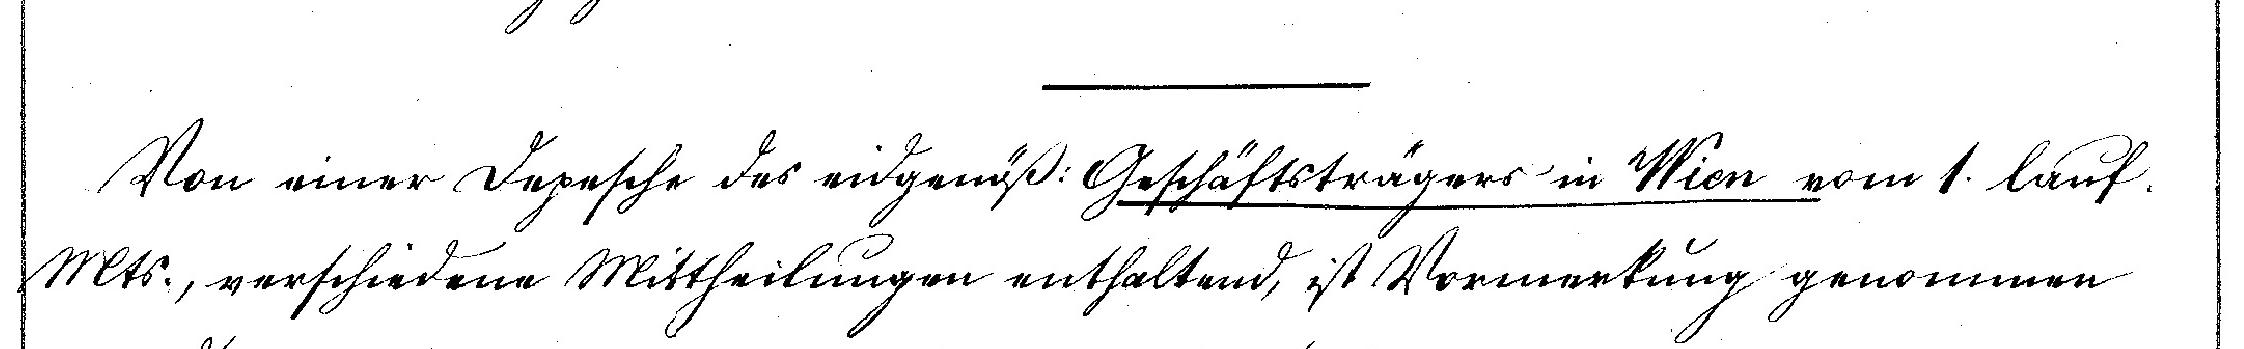 Von einer Depesche des eidgenöß: Geschäftsträgers in Wien vom 1. lauf.
Mts., verschiedene Mittheilungen enthaltend, ist Vormerkung genommen